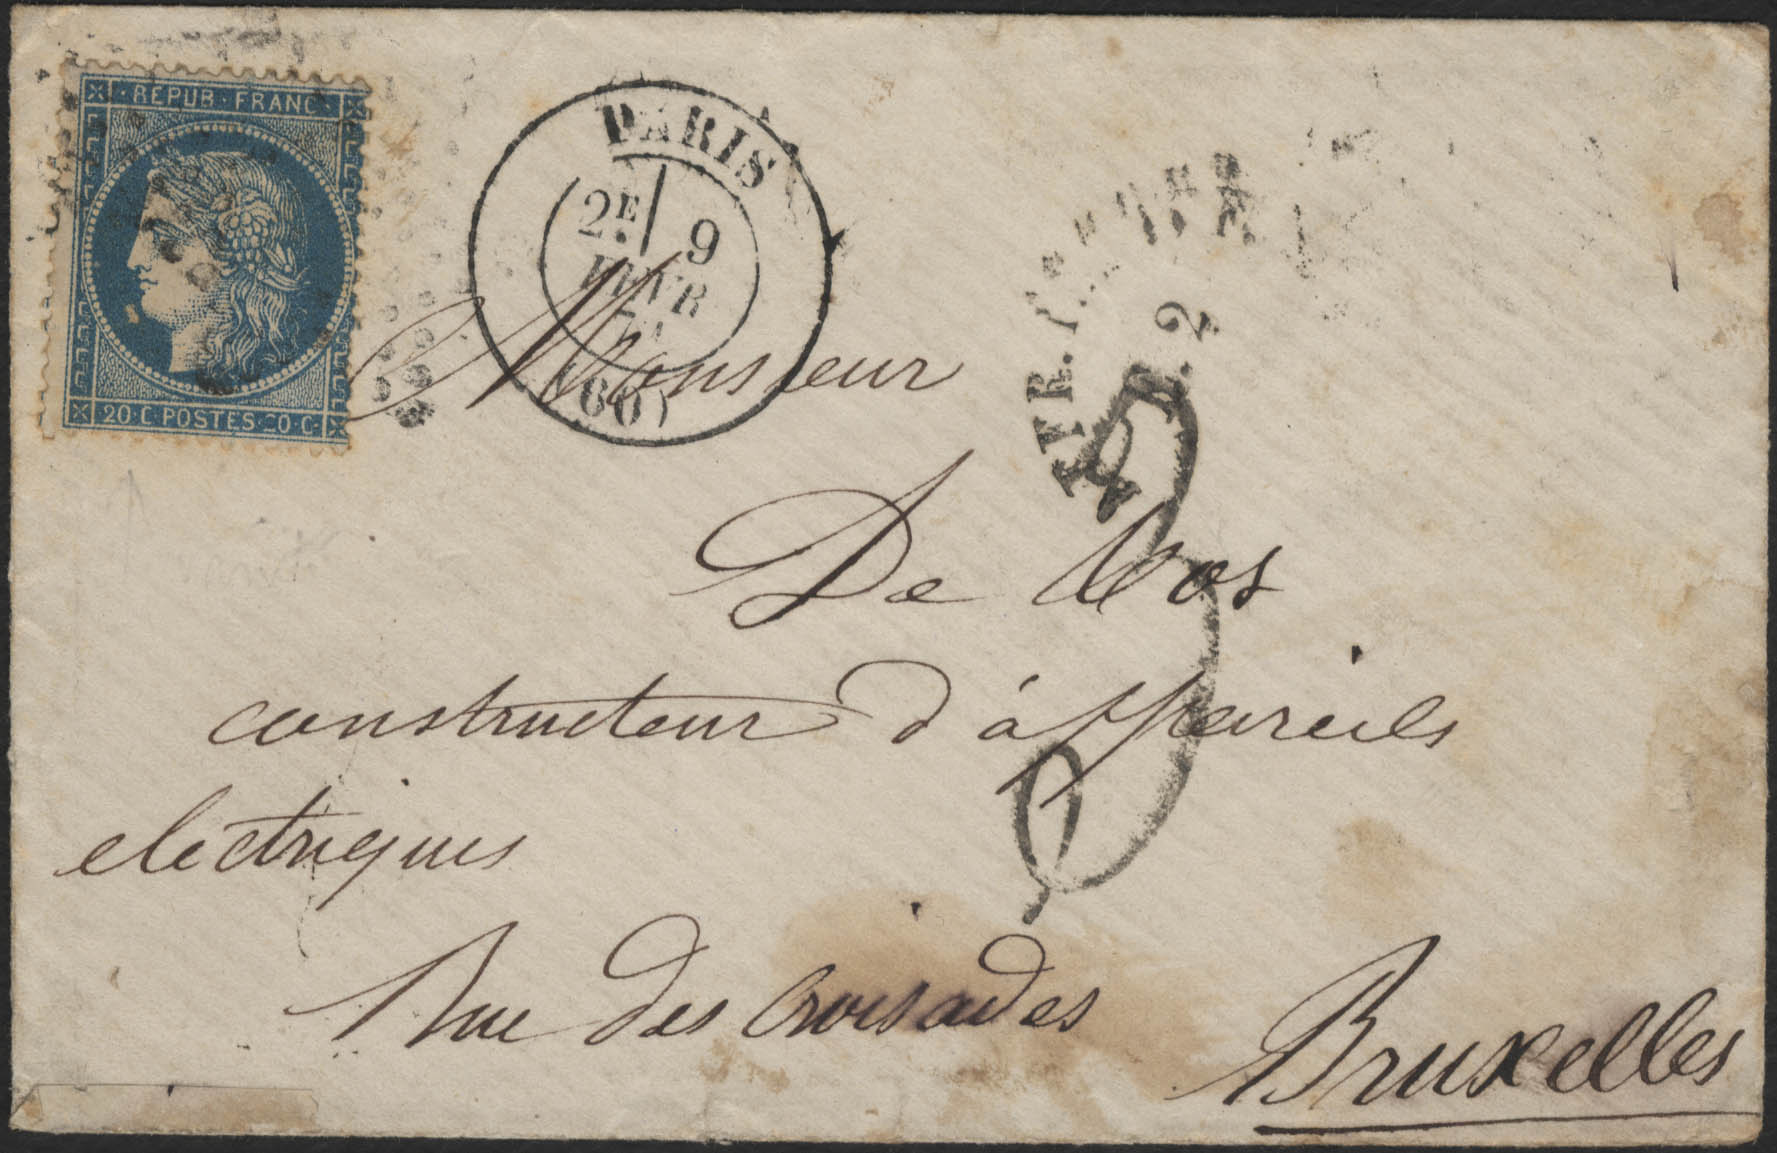 REPUB · FRANC
20 · C POSTES 20 · C
PARIS
2E 9
FEVR
71
(60)
2
Monsieur
De Vos
constructeur d'áppareils
electriques
Rue des Croisades
Bruxelles